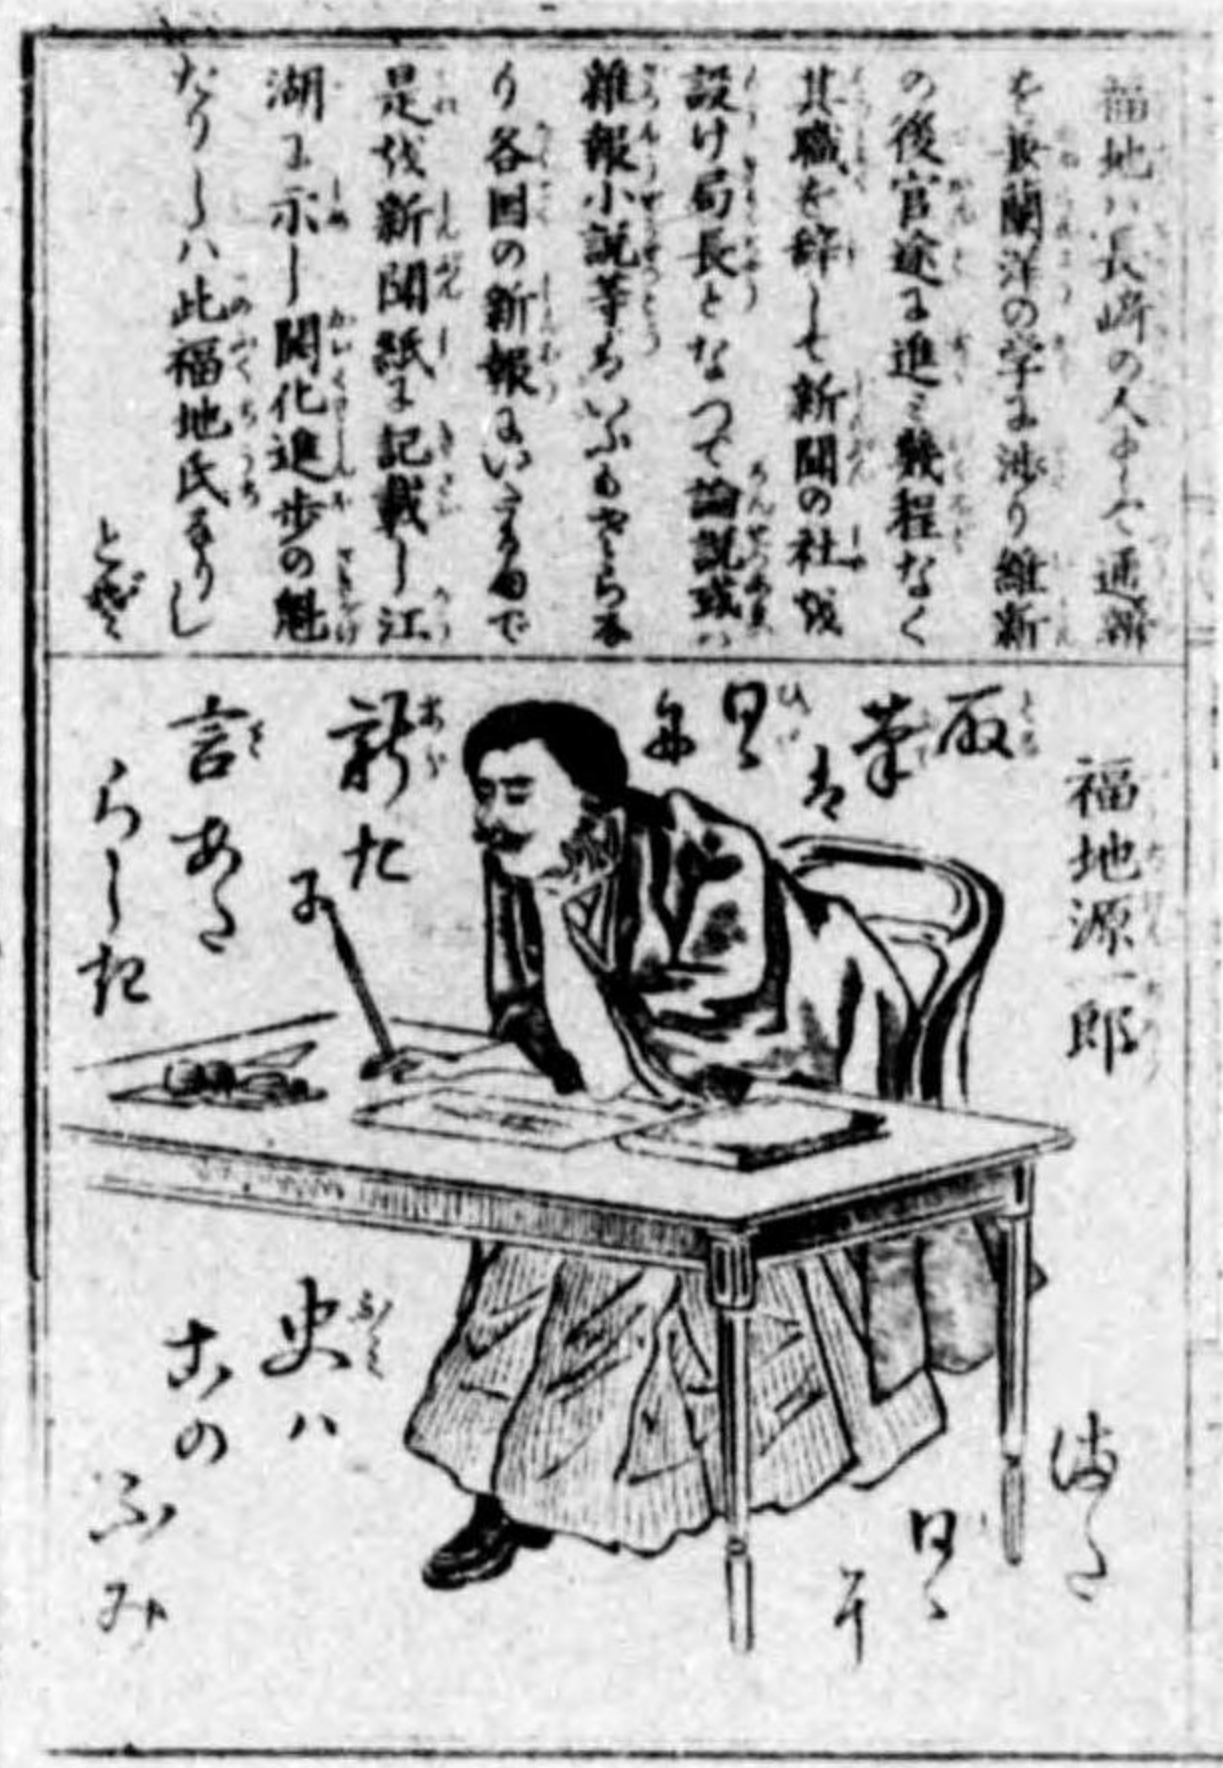 福地ハ長崎の人中して通辯
を兼蘭洋の学に渉り維新
の後官途に進ミ幾程なく
其職を辞して新聞の社を
設け局長となつて論説或ハ
雑報小説等ハいふもさら本
り各国の新報にいたるまで
是を新聞紙に記載し江
湖に示し開化進歩の魁
たりしハ此福地氏なりし
とぞ
福地源一郎
取
筆は
日々に
新たに
言あた
らしき
またの
日々
史ハ
このふみ